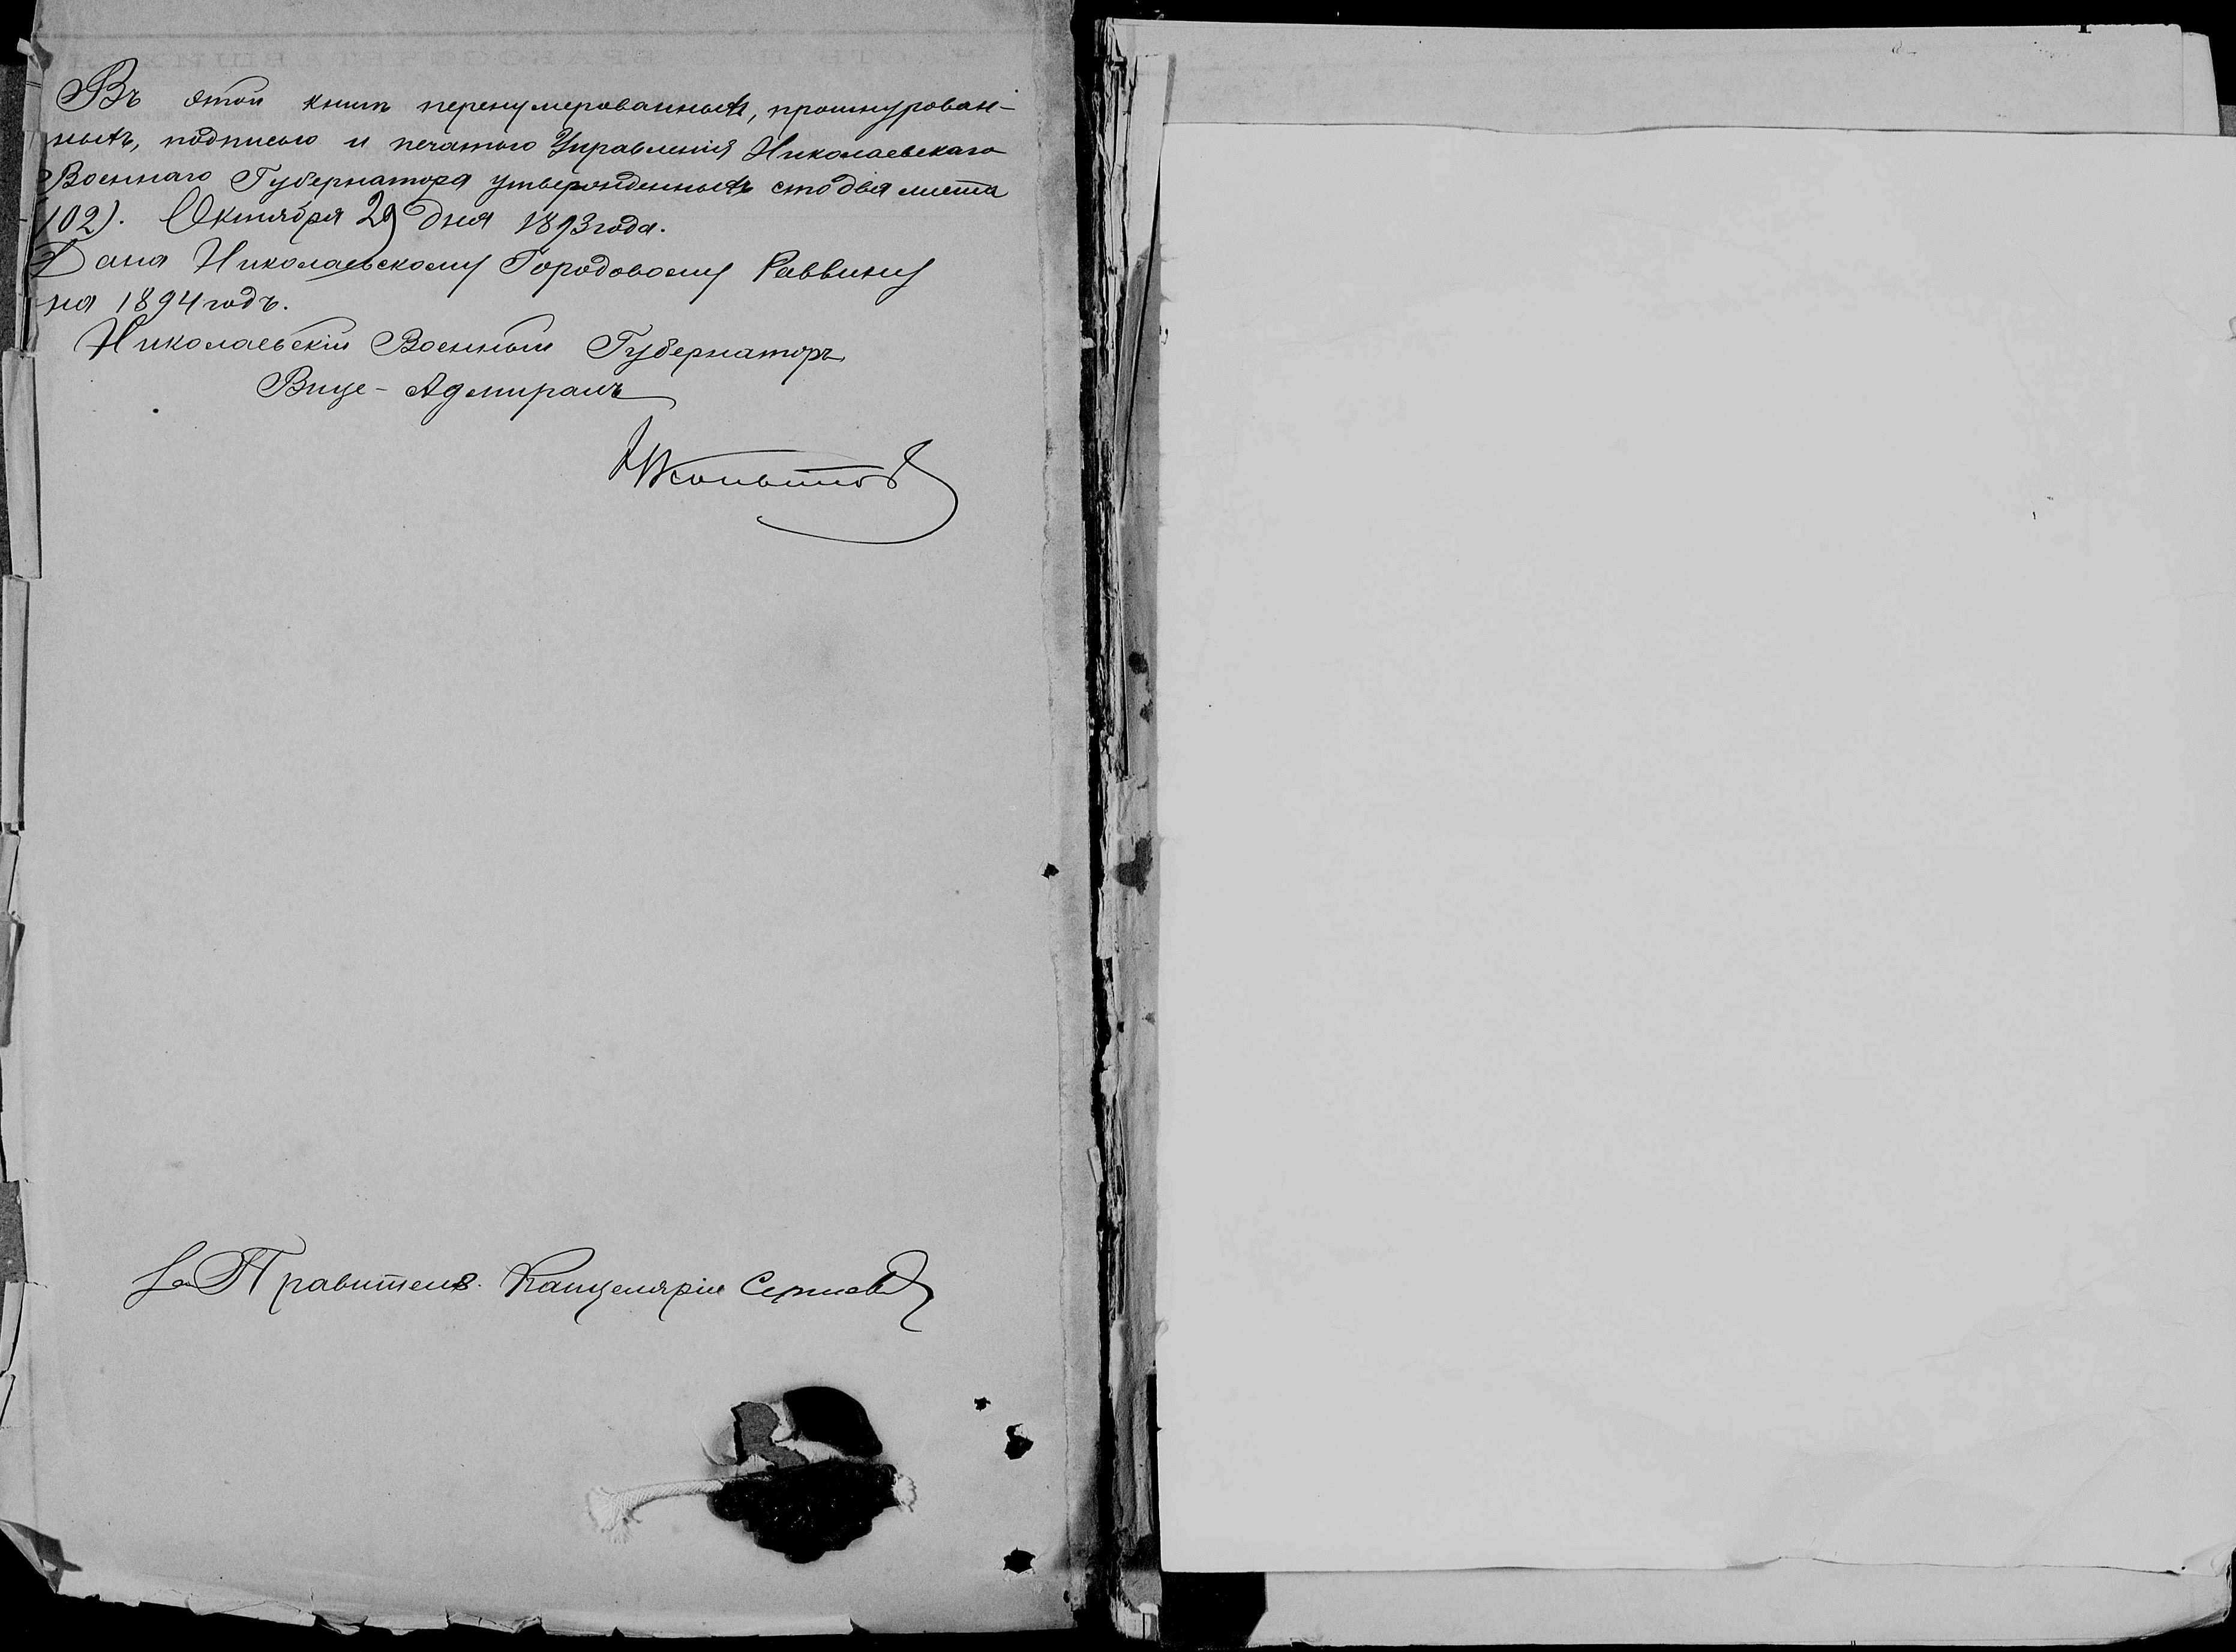 Въ этой книгѣ перенумерованныхъ, прошнурован-
ныхъ, подписью и печатью Управленія Николаевскаго
Военнаго Губернатора утвержденныхъ сто два листа
(102). Октября 29 дня 1893 года.
Дана Николаевскому Городовому Раввину
на 1894 годъ.
Николаевскій Военный Губернаторъ,
Вице-Адмиралъ
Копытов
За Правителя Канцеляріи